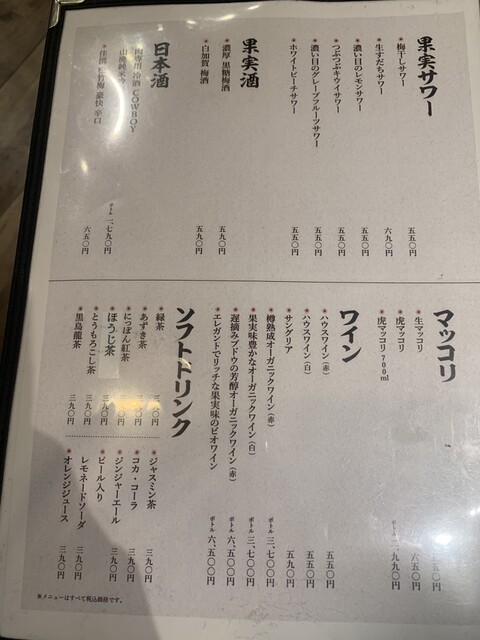 果実サワー
梅干しサワー 五五〇円
生すだちサワー 六九〇円
濃い目のレモンサワー 五五〇円
つぶつぶキウイサワー 五五〇円
濃い目のグレープフルーツサワー 五五〇円
ホワイトピーチサワー 五五〇円
果実酒
濃厚 黒糖梅酒 五九〇円
白加賀 梅酒 五九〇円
日本酒
肉専用 冷酒 COWBOY
ボトル 二、七九〇円
豪快 辛口 六五〇円
マッコリ
生マッコリ
虎マッコリ 六五〇円
虎マッコリ 700ml
ワイン
ハウスワイン(赤) 五五〇円
ハウスワイン(白) 五五〇円
サングリア 五九〇円
樽熟成オーガニックワイン(赤) ボトル 三、七〇〇円
果実味豊かなオーガニックワイン(白) ボトル 三、七〇〇円
遅摘みブドウの芳醇オーガニックワイン(赤) ボトル 六、五〇〇円
エレガントでリッチな果実味のビオワイン ボトル 六、五〇〇円
ソフトドリンク
緑茶
あずき茶
にっぽん紅茶
ほうじ茶 三九〇円
とうもろこし茶 三九〇円
黒烏龍茶 三九〇円
ジャスミン茶 三九〇円
コカ・コーラ 三九〇円
ジンジャーエール 三九〇円
ビール入り
レモネードソーダ 三九〇円
オレンジジュース 三九〇円
※メニューはすべて税込価格です。